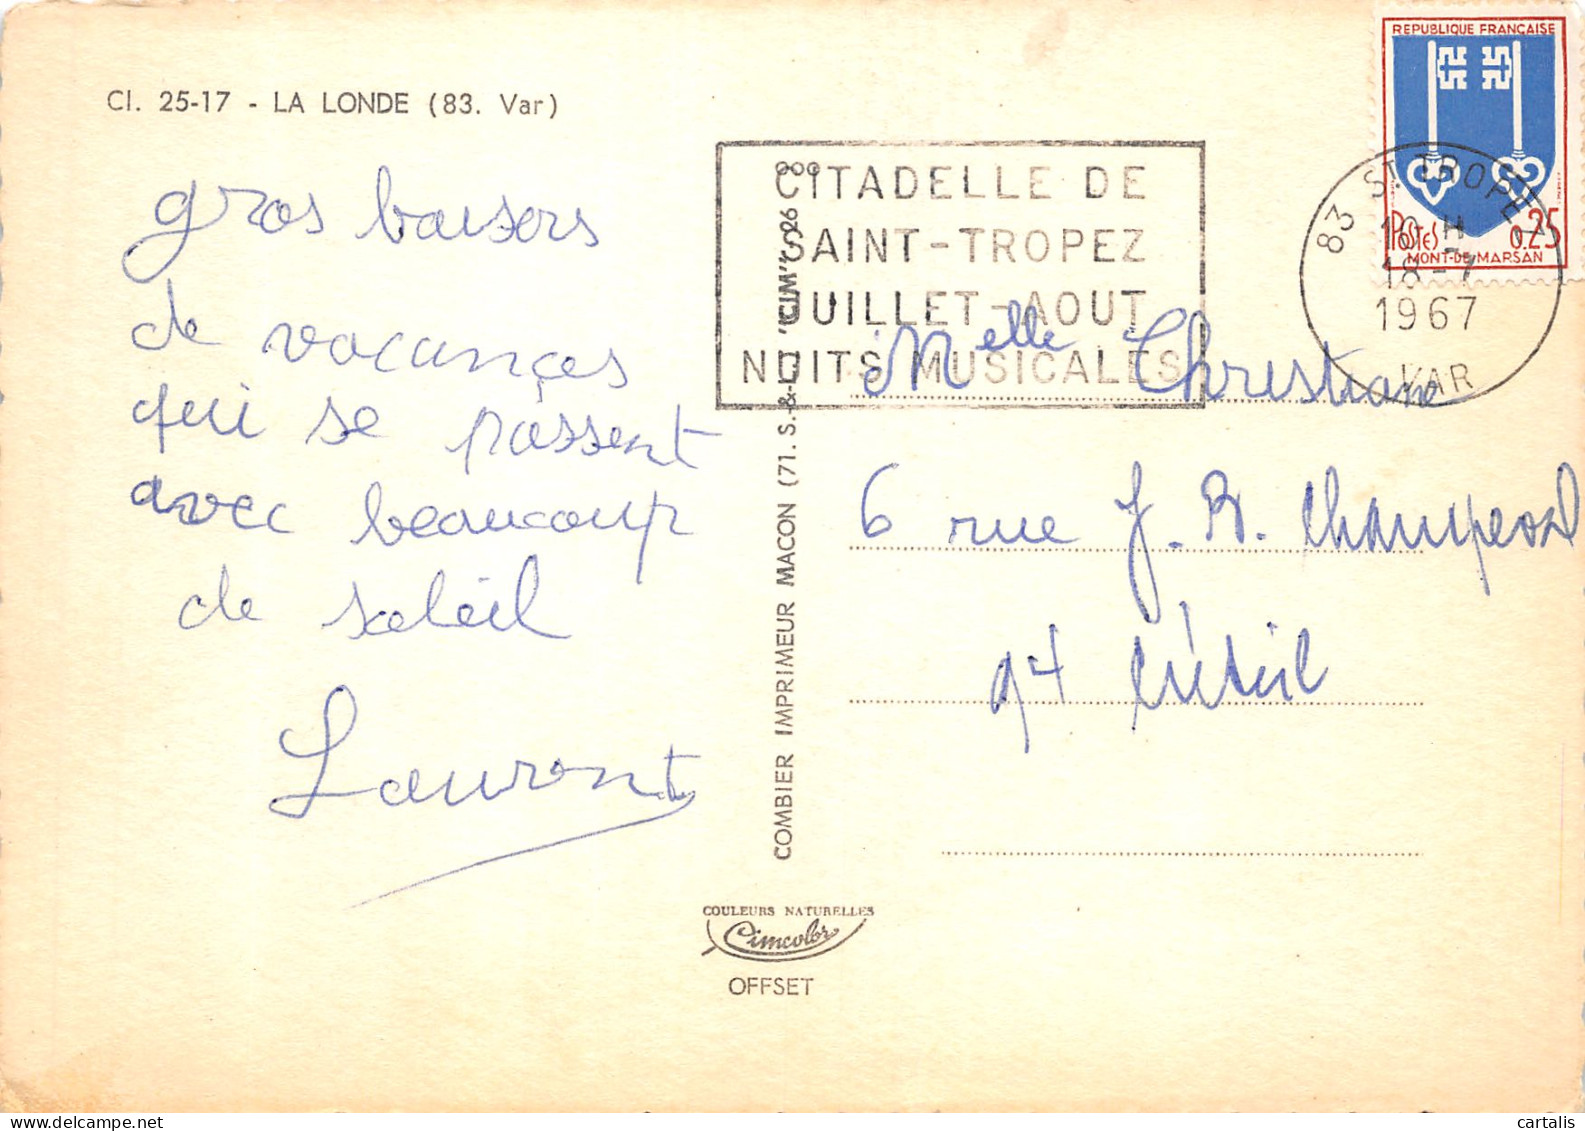 Cl. 25-17 - LA LONDE (83. Var)
gros baisers
de vacances
qui se passent
avec beaucoup
de soleil
Laurent
COMBIER IMPRIMEUR MACON (71. S.-&-L.) "CIM"
COULEURS NATURELLES
Cimcolor
OFFSET
CITADELLE DE
SAINT-TROPEZ
JUILLET-AOUT
NUITS MUSICALES
REPUBLIQUE FRANÇAISE
POSTES 0.25
MONT-DE-MARSAN
83 ST. TROPEZ
18-7
1967
VAR
Melle Christiane
6 rue J. B. Champeval
94 Créteil
cartalis